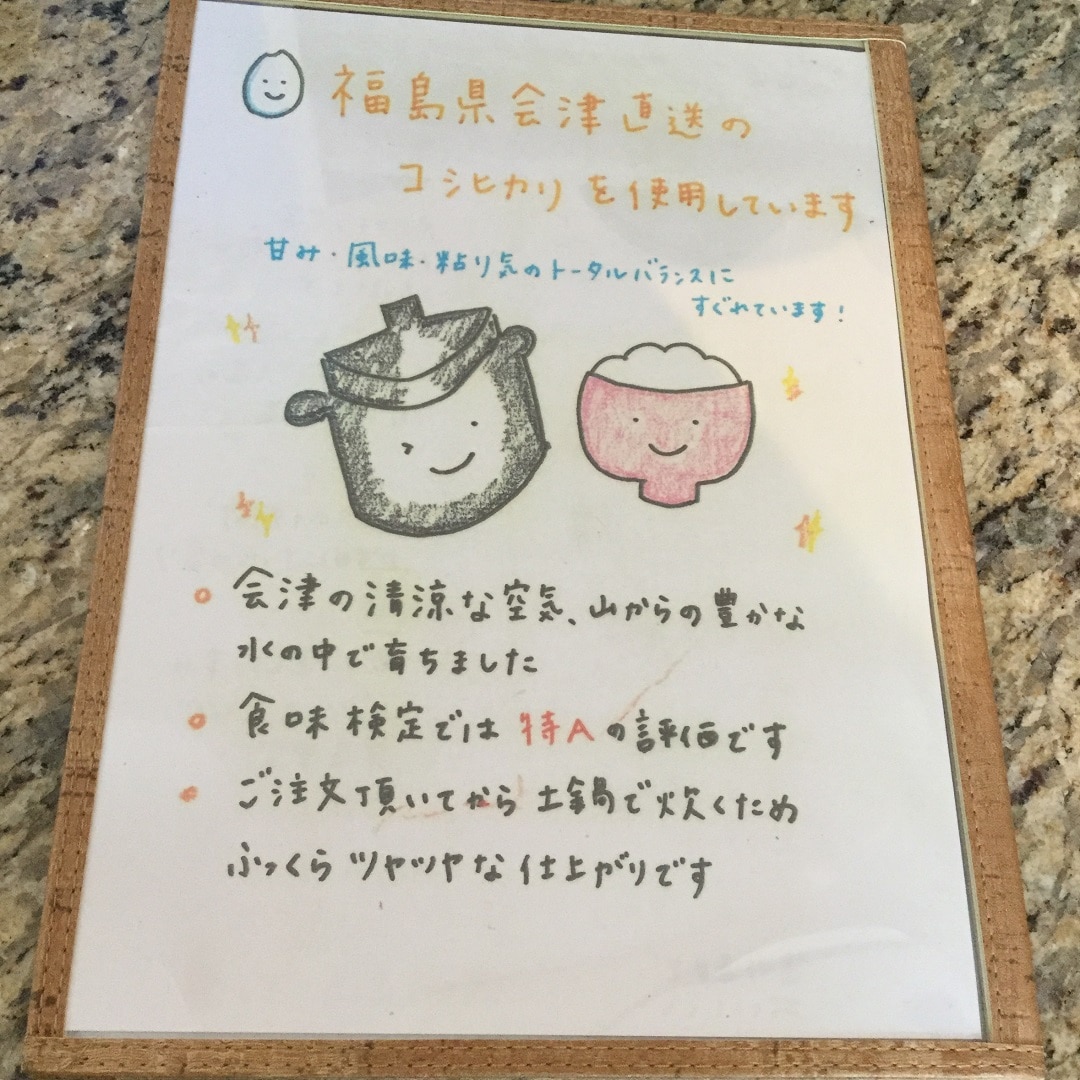 福島県会津直送の
コシヒカリを使用しています
甘み・風味・粘り気のトータルバランスに
すぐれています!
会津の清涼な空気、山からの豊かな
水の中で育ちました
食味検定では特Aの評価です
ご注文頂いてから土鍋で炊くため
ふっくらツヤツヤな仕上がりです